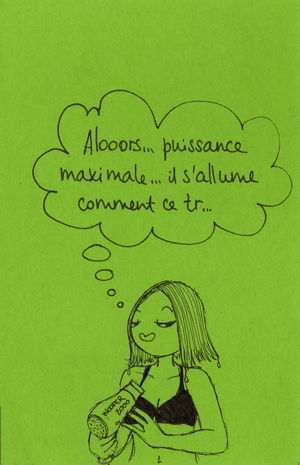 Alooors... puissance
maximale... il s'allume
comment ce tr...
WOOPER
2000